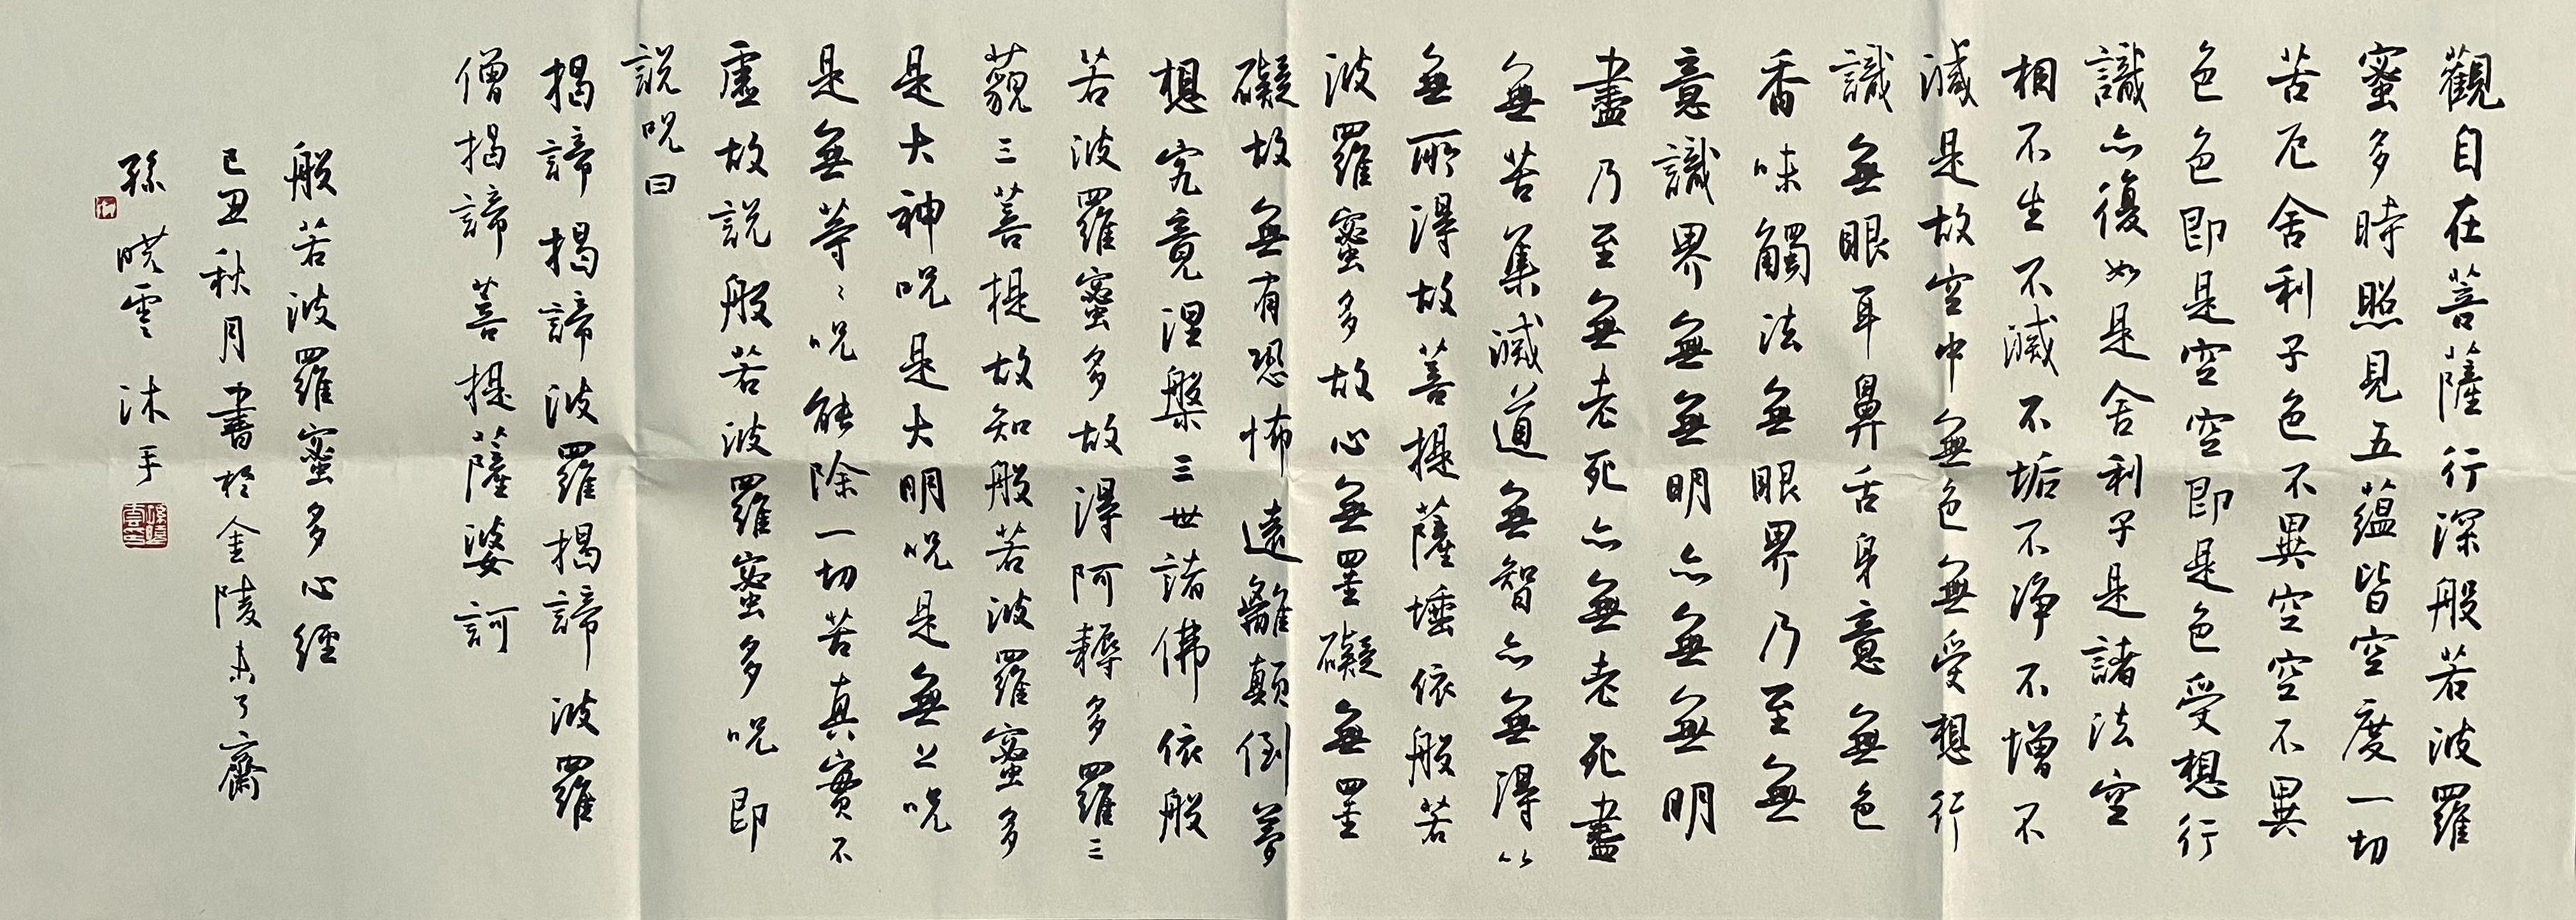 觀自在菩薩行深般若波羅
蜜多時照見五蘊皆空度一切
苦厄舍利子色不異空空不異
色色即是空空即是色受想行
識亦復如是舍利子是諸法空
相不生不滅不垢不淨不增不
滅是故空中無色無受想行
識無眼耳鼻舌身意無色
香味觸法無眼界乃至無
意識界無無明亦無無明
盡乃至無老死亦無老死盡
無苦集滅道無智亦無得以
無所得故菩提薩埵依般若
波羅蜜多故心無罣礙無罣
礙故無有恐怖遠離顛倒夢
想究竟涅槃三世諸佛依般
若波羅蜜多故得阿耨多羅三
藐三菩提故知般若波羅蜜多
是大神呪是大明呪是無上呪
是無等〻呪能除一切苦真實不
虛故說般若波羅蜜多呪即
說呪曰
揭諦揭諦波羅揭諦波羅
僧揭諦菩提薩婆訶
般若波羅蜜多心經
己丑秋月書於金陵未了齋
孫曉雲沐手